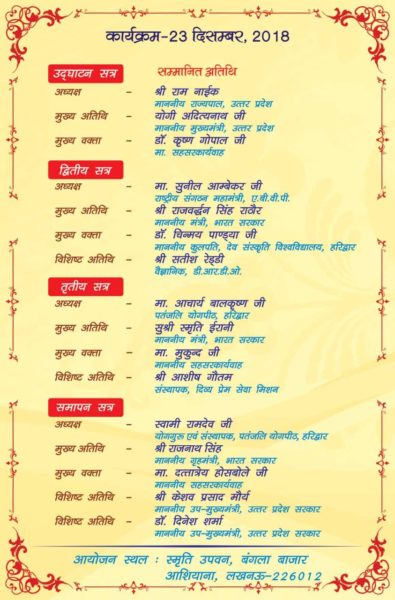 कार्यक्रम-23 दिसम्बर, 2018
उद्घाटन सत्र सम्मानित अतिथि
अध्यक्ष - श्री राम नाईक
माननीय राज्यपाल, उत्तर प्रदेश
मुख्य अतिथि - योगी अदित्यनाथ जी
माननीय मुख्यमंत्री, उत्तर प्रदेश
मुख्य वक्ता - डॉ. कृष्ण गोपाल जी
मा. सहसरकार्यवाह
द्वितीय सत्र
अध्यक्ष - मा. सुनील आम्बेकर जी
राष्ट्रीय संगठन महामंत्री, ए.बी.वी.पी.
मुख्य अतिथि - श्री राजवर्द्धन सिंह राठौर
माननीय मंत्री, भारत सरकार
मुख्य वक्ता - डॉ. चिन्मय पाण्ड्या जी
माननीय कुलपति, देव संस्कृति विश्वविद्यालय, हरिद्वार
विशिष्ट अतिथि - श्री सतीश रेड्डी
वैज्ञानिक, डी.आर.डी.ओ.
तृतीय सत्र
अध्यक्ष - मा. आचार्य बालकृष्ण जी
पतंजलि योगपीठ, हरिद्वार
मुख्य अतिथि - सुश्री स्मृति ईरानी
माननीय मंत्री, भारत सरकार
मुख्य वक्ता - मा. मुकुन्द जी
माननीय सहसरकार्यवाह
विशिष्ट अतिथि - श्री आशीष गौतम
संस्थापक, दिव्य प्रेम सेवा मिशन
समापन सत्र
अध्यक्ष - स्वामी रामदेव जी
योगगुरू एवं संस्थापक, पतंजलि योगपीठ, हरिद्वार
मुख्य अतिथि - श्री राजनाथ सिंह
माननीय गृहमंत्री, भारत सरकार
मुख्य वक्ता - मा. दत्तात्रेय होसबोले जी
माननीय सहसरकार्यवाह
विशिष्ट अतिथि - श्री केशव प्रसाद मौर्य
माननीय उप-मुख्यमंत्री, उत्तर प्रदेश सरकार
विशिष्ट अतिथि - डॉ. दिनेश शर्मा
माननीय उप-मुख्यमंत्री, उत्तर प्रदेश सरकार
आयोजन स्थल : स्मृति उपवन, बंगला बाजार
आशियाना, लखनऊ-226012